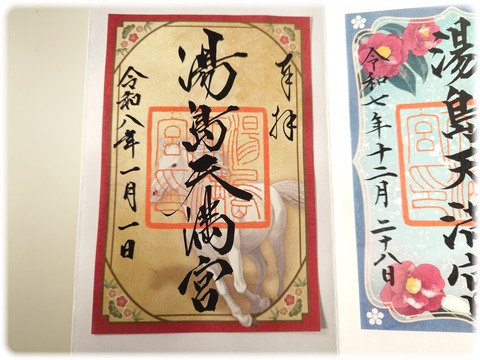 奉拝
湯島天満宮
令和八年一月一日
湯島天満宮
令和七年十二月二十八日